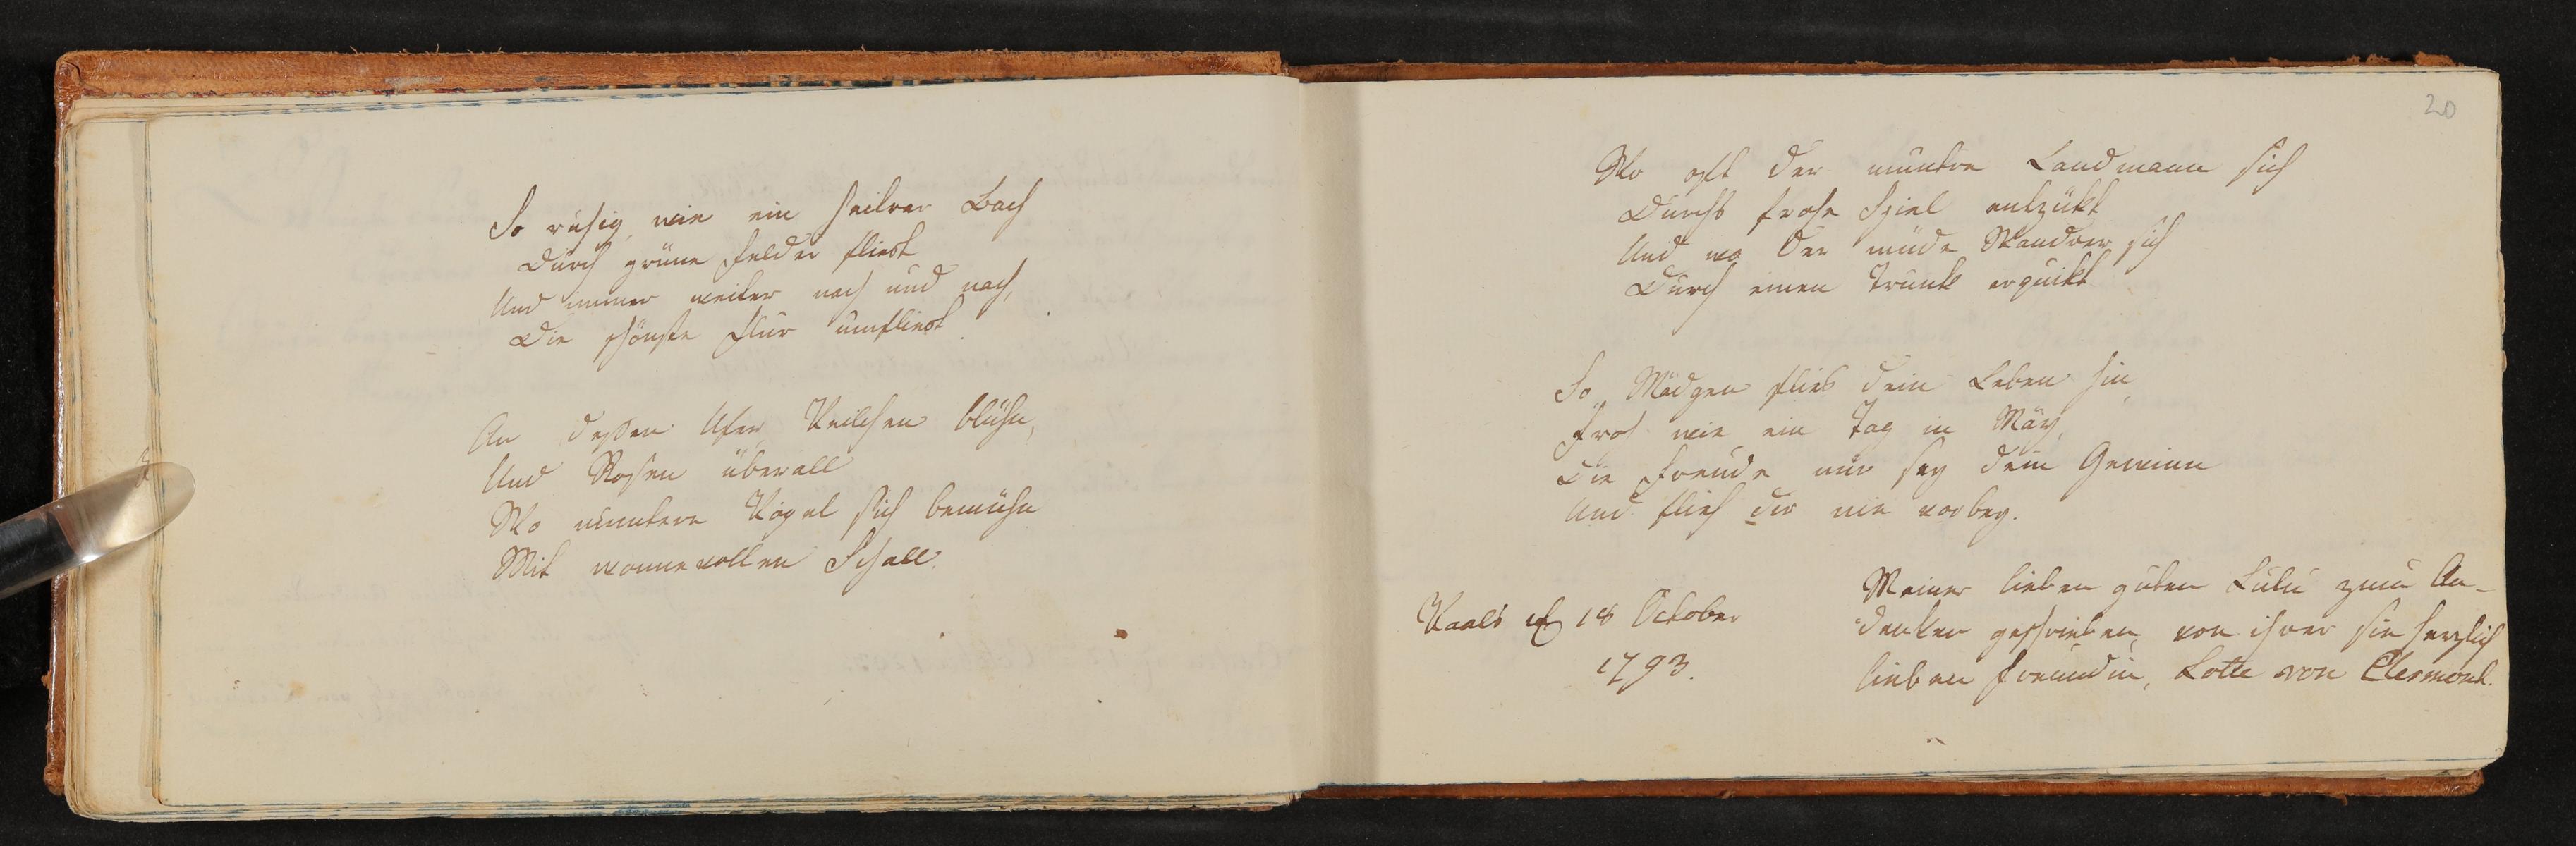 So ruhig, wie ein heitrer Bach
Durch grüne Felder fliest
Und immer weiter nach und nach,
Die schönste Flur umfliest.
An deßen Ufer Veilchen blühn,
Und Rosen überall
Wo muntere Vögel sich bemühn
Mit wonnevollen Schall.
20
Wo oft der muntre Landmann sich
Durchs frohe Spiel entzükt
Und wo der müde Wandrer sich
Durch einen Trunk erquikt
So, Mädgen flies dein Leben hin,
Froh wie ein Tag in May,
Die Freude nur sey dein Gewinn
Und flieh dir nie vorbey.
Vaals 18 October
1793.
Meiner lieben guten Lulu zum An-
denken geschrieben, von ihrer sie herzlich
lieben Freundin, Lotte von Clermont.